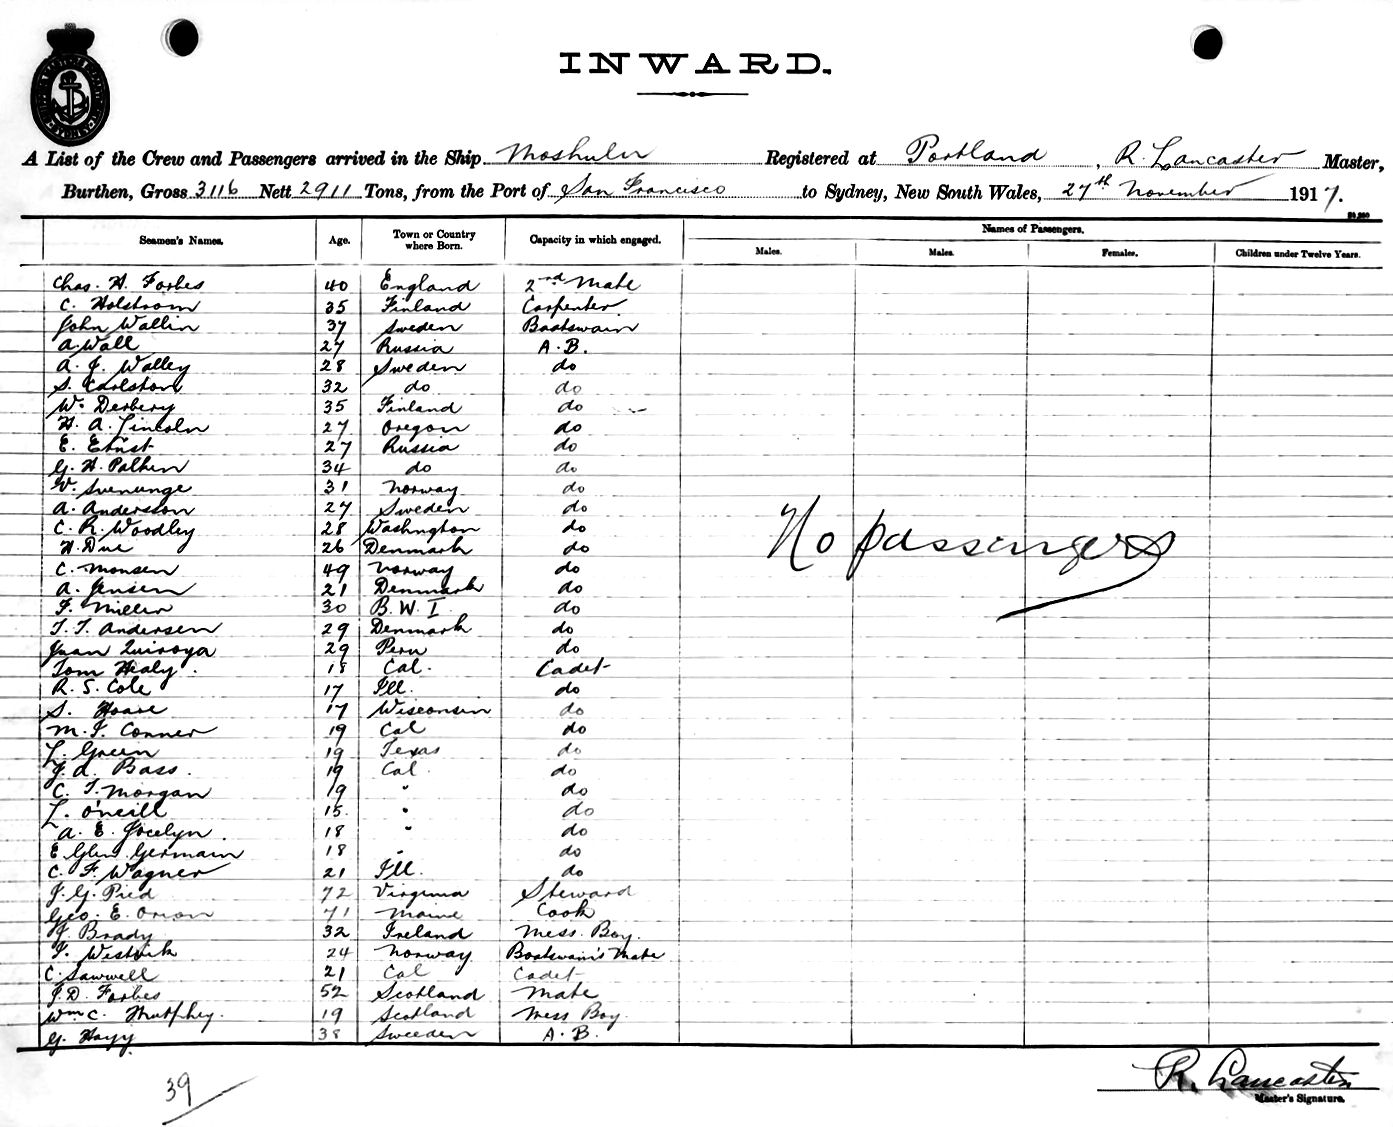 INWARD.
A List of the Crew and Passengers arrived in the Ship Moshulu Registered at Portland, R. Lancaster Master,
Burthen, Gross 3116 Nett 2911 Tons, from the Port of San Francisco to Sydney, New South Wales, 27th November 1917.
Seamen's Names. Age. Town or Country where Born. Capacity in which engaged. Names of Passengers.
Males. Males. Females. Children under Twelve Years.
Chas. H. Forbes 40 England 2nd Mate
C. Holstrom 35 Finland Carpenter
John Wallin 37 Sweden Boatswain
A. Wall 27 Russia A.B.
A. J. Walley 28 Sweden do
S. Carlston 32 do do
W. Derbery 35 Finland do
H. A. Lincoln 27 Oregon do
E. 27 Russia do
G. H. Palken 34 do do
V. Svenunge 31 Norway do
A. Andersson 27 Sweden do
C. R. Woodley 28 Washington do
H. Due 26 Denmark do
C. Monsen 49 Norway do
A. Jensen 21 Denmark do
F. Miller 30 B.W.I. do
T. T. Andersen 29 Denmark do
Juan Quiroya 29 Peru do
Tom Healy. 18 Cal. Cadet
R. S. Cole 17 Ill. do
S. Hoare 17 Wisconsin do
M. F. Conner 19 Cal do
L. Green 19 Texas do
J. A. Bass. 19 Cal. do
C. T. Morgan 19 " do
L. O'neill 15. " do
A. E. Jocelyn. 18 " do
E Glen Germain 18 " do
C. F. Wagner 21 Ill. do
J. G. Pied 72 Virginia Steward
Geo. E. Orion 71 Maine Cook
J. Brady 32 Ireland Mess. Boy.
F. 24 Norway Boatswain's Mate
C. Sawwell 21 Cal Cadet
J. D. Forbes 52 Scotland Mate
Wm C. Murphey. 19 Scotland Mess Boy.
G. Hayy 38 Sweeden A.B.
No passengers
39
R. Lancaster
Master's Signature.